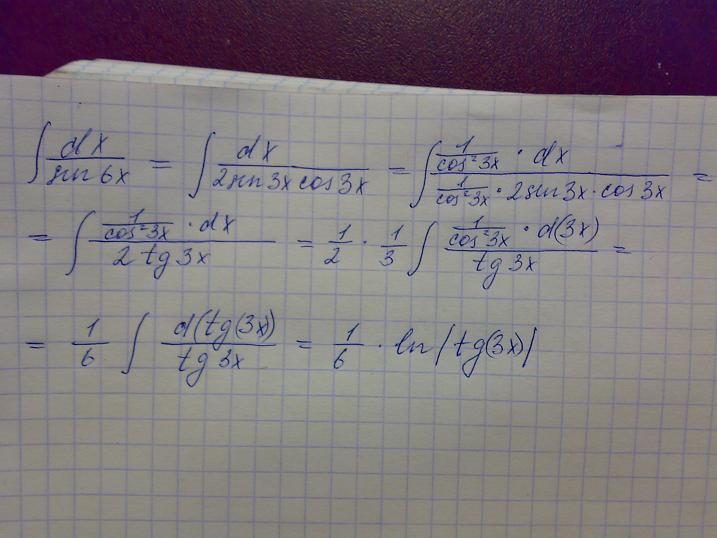 ∫ dx / sin 6x = ∫ dx / (2 sin 3x cos 3x) = ∫ (1/cos²3x · dx) / (1/cos²3x · 2 sin 3x · cos 3x) =
= ∫ (1/cos²3x · dx) / (2 tg 3x) = 1/2 · 1/3 ∫ (1/cos²3x · d(3x)) / (tg 3x) =
= 1/6 ∫ d(tg(3x)) / (tg 3x) = 1/6 · ln|tg(3x)|